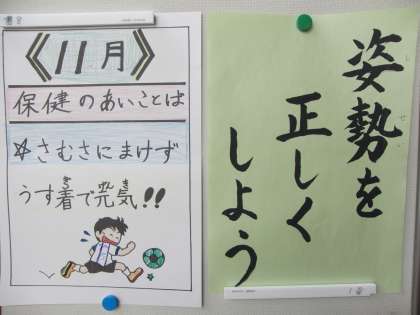 《11月》
保健のあいことば
☆さむさにまけず
うす着で元気!!
ぎ
げん
き
姿勢を
正しく
しよう